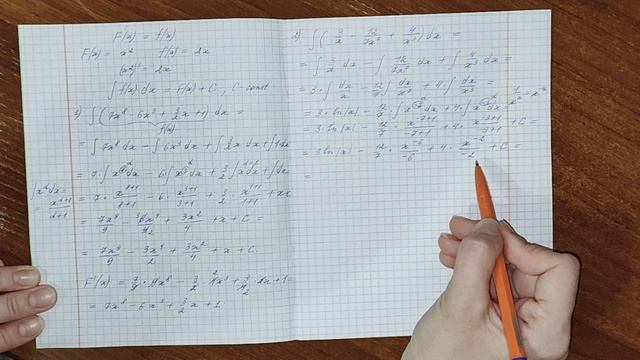 F'(x) = f(x)
F(x) = x² f(x) = 2x
(x²)' = 2x
∫f(x) dx = F(x) + C, C-const
1) ∫(7x⁸ - 6x³ + 3/2 x + 1) dx =
f(x)
= ∫7x⁸dx - ∫6x³dx + ∫3/2 x dx + ∫1dx
= 7·∫x⁸dx - 6·∫x³dx + 3/2 ∫x dx + ∫dx
∫x^α dx = x^(α+1)/(α+1)
= 7· x^(8+1)/(8+1) - 6· x^(3+1)/(3+1) + 3/2 · x^(1+1)/(1+1) + x
= 7x⁹/9 - 6x⁴/4 + 3x²/4 + x + C =
= 7x⁹/9 - 3x⁴/2 + 3x²/4 + x + C.
F'(x) = 7/9 · 9x⁸ - 3/2 · 4x³ + 3/4 · 2x + 1 =
= 7x⁸ - 6x³ + 3/2 x + 1.
2) ∫(3/x - 12/7x⁷ + 4/x³) dx =
= ∫3/x dx - ∫12/7x⁷ dx + ∫4/x³ dx =
= 3·∫dx/x - 12/7 ∫dx/x⁷ + 4·∫dx/x³ =
= 3·ln|x| - 12/7 ·∫x⁻⁷dx + 4·∫x⁻³dx
= 3·ln|x| - 12/7 · x^(-7+1)/(-7+1) + 4· x^(-3+1)/(-3+1) + C =
= 3ln|x| - 12/7 · x⁻⁶/-6 + 4· x⁻²/-2 + C =
=